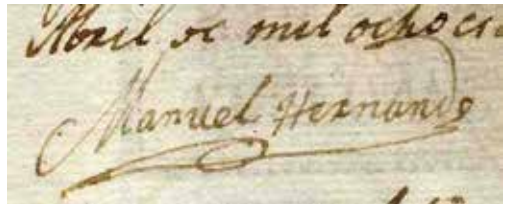 Abril de mil ochocie
Manuel Hernande